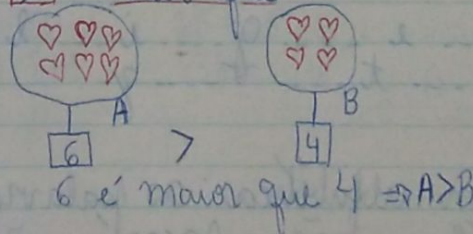 A B
6 > 4
6 é maior que 4 ⇒ A>B